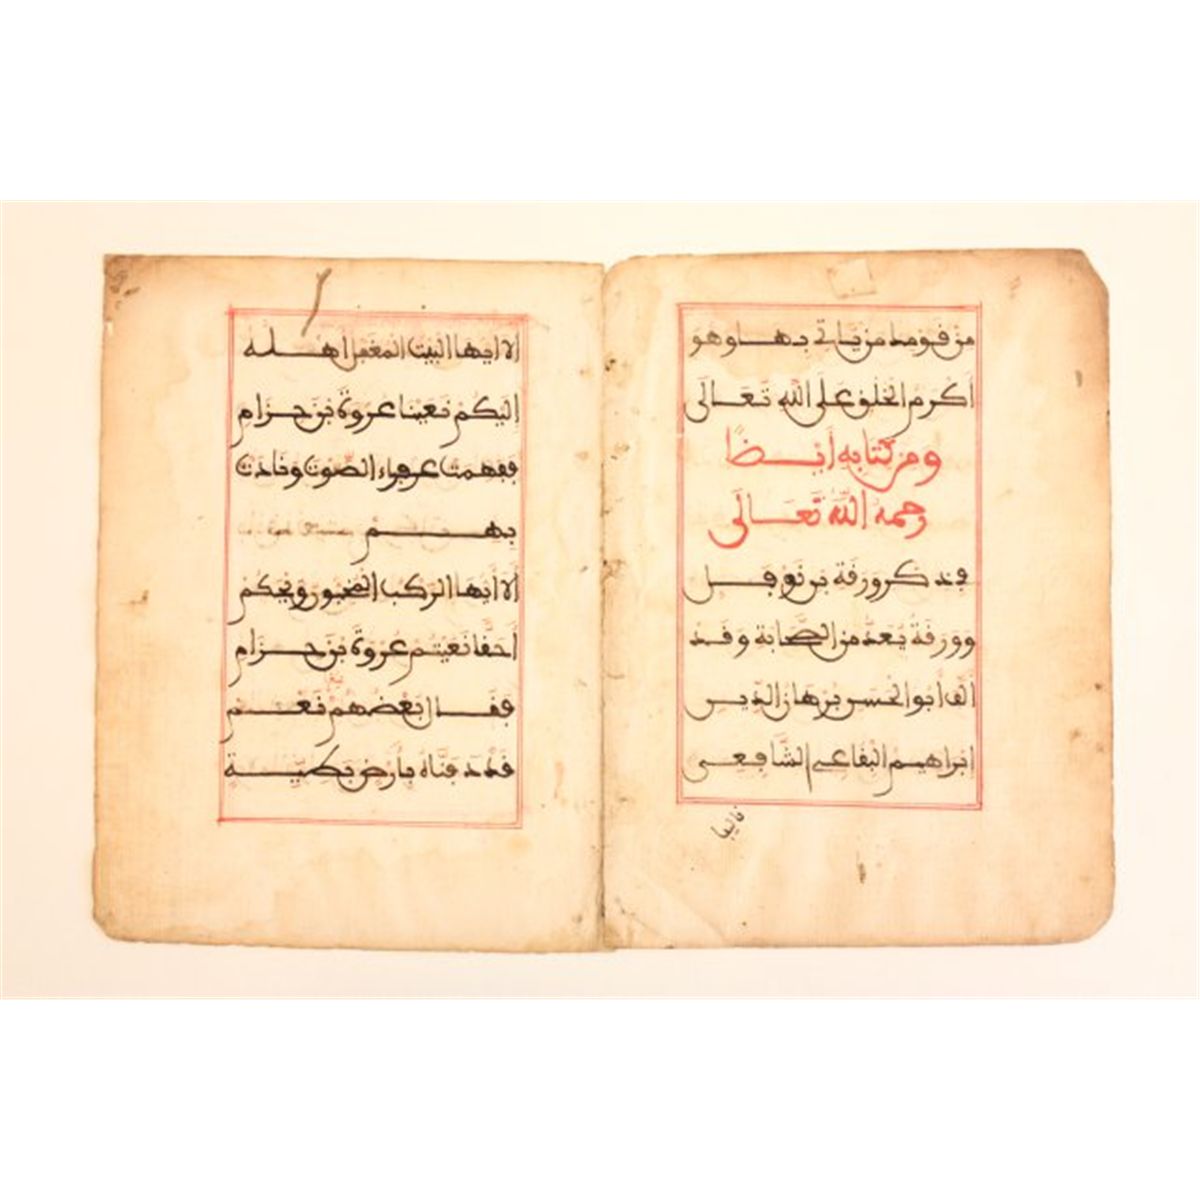 من قومه من ياتي بها وهو
أكرم الخلق على الله تعالى
ومن كتابه أيضًا
رحمه الله تعالى
قد ذكر ورقة بن نوفل
وورقة يُعَدّ من الصحابة وقد
ألف أبو الحسن برهان الدين
ابراهيم البقاعي الشافعي
تاليفا
ألا ايها البيت المغفل أهله
إليكم نعينا عروة بن حزام
ففهمت عفراء الصوت ونادت
بهم
ألا أيها الركب المخبون ويحكم
أحقا نعيتم عروة بن حزام
فقال بعضهم نعم
قد دفناه بأرض بصية